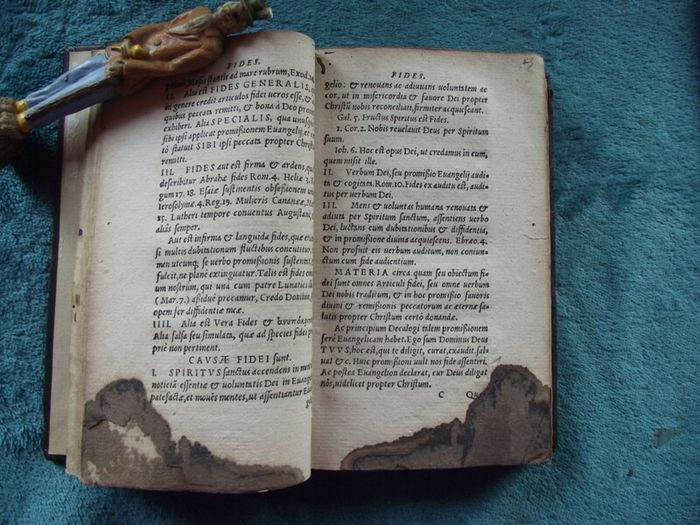 FIDES.
Mosis stantis ad mare rubrum, Exod. 14
II. Alia est FIDES GENERALIS, qua
in genere credit articulos fidei veros esse, &
quibus peccata remitti, & bona à Deo
exhiberi. Alia SPECIALIS, qua unusq
sibi ipsi applicat promißionem Euangelij, et
tò statuit SIBI ipsi peccata propter Christũ
remitti.
III. FIDES aut est firma & ardens, qua
describitur Abrahæ fides Rom. 4. Heliæ 3.
gum 17. 18. Esaiæ sustinentis obseßionem
Ierosolymæ 4. Reg. 19. Mulieris Cananeæ, M
15. Lutheri tempore conventus Augustani,
aliàs semper.
Aut est infirma & languida fides, quæ
si multis dubitationum fluctibus concutitur
men utcunq; se verbo promißionis sustent
fulcit, ne planè extinguatur. Talis est fides
um nostrûm, qui una cum patre Lunatici
(Mar. 7.) aßiduè precamur, Credo Domine
opem fer diffidentiæ meæ.
IIII. Alia est Vera Fides &
Alia falsa seu simulata, quæ ad species fidei
priè non pertinent.
CAVSÆ FIDEI sunt.
I. SPIRITVS sanctus accendens in mente
noticiã essentiæ & voluntatis Dei in Euang
patefactæ, et movẽs mentes, ut assentiantur Eu
FIDES.
gelio: & renovans ac adiuvans voluntatem ac
cor, ut in misericordia & favore Dei propter
Christũ nobis reconciliati, firmiter acquiescant.
Gal. 5. Fructus Spiritus est Fides.
1. Cor. 2. Nobis revelavit Deus per Spiritum
suum.
Ioh. 6. Hoc est opus Dei, ut credamus in eum,
quem misit ille.
II. Verbum Dei, seu promißio Euangelij audi
ta & cogitata. Rom. 10. Fides ex auditu est, audi
tus per verbum Dei.
III. Mens & voluntas humana renovata &
adiuta per Spiritum sanctum, assentiens verbo
Dei, luctans cum dubitationibus & diffidentia,
& in promißione divina acquiescens. Ebræo. 4.
Non profuit eis verbum auditum, non coniun
ctum cum fide audientium.
MATERIA circa quam seu obiectum fi
dei sunt omnes Articuli fidei, seu omne verbum
Dei nobis traditum, & in hoc promißio favoris
divini & remißionis peccatorum ac æternæ sa
lutis propter Christum certò donandæ.
Ac principium Decalogi talem promißionem
ferè Euangelicam habet. Ego sum Dominus Deus
TVVS, hoc est, qui te diligit, curat, exaudit, sal
vat & c. Huic promißioni vult nos fide assentiri.
Ac postea Euangelion declarat, cur Deus diligat
nos, videlicet propter Christum.
C